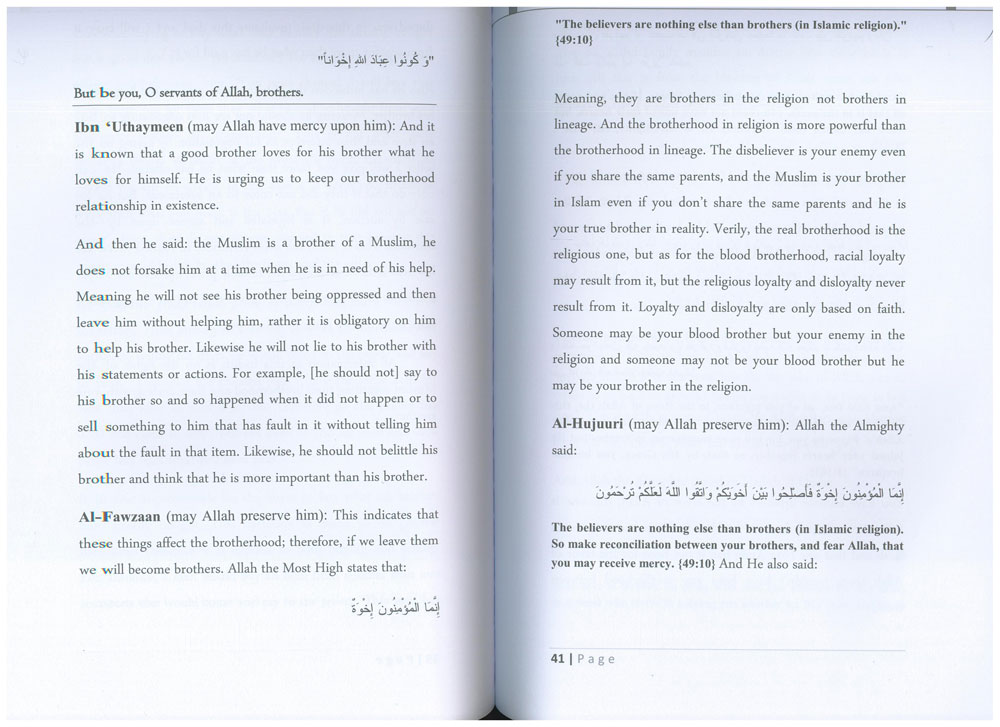 "وَ كُونُوا عِبَادَ اللهِ إِخْوَاناً"
But be you, O servants of Allah, brothers.
Ibn ‘Uthaymeen (may Allah have mercy upon him): And it
is known that a good brother loves for his brother what he
loves for himself. He is urging us to keep our brotherhood
relationship in existence.
And then he said: the Muslim is a brother of a Muslim, he
does not forsake him at a time when he is in need of his help.
Meaning he will not see his brother being oppressed and then
leave him without helping him, rather it is obligatory on him
to help his brother. Likewise he will not lie to his brother with
his statements or actions. For example, [he should not] say to
his brother so and so happened when it did not happen or to
sell something to him that has fault in it without telling him
about the fault in that item. Likewise, he should not belittle his
brother and think that he is more important than his brother.
Al-Fawzaan (may Allah preserve him): This indicates that
these things affect the brotherhood; therefore, if we leave them
we will become brothers. Allah the Most High states that:
إِنَّمَا الْمُؤْمِنُونَ إِخْوَةٌ
"The believers are nothing else than brothers (in Islamic religion)."
{49:10}
Meaning, they are brothers in the religion not brothers in
lineage. And the brotherhood in religion is more powerful than
the brotherhood in lineage. The disbeliever is your enemy even
if you share the same parents, and the Muslim is your brother
in Islam even if you don’t share the same parents and he is
your true brother in reality. Verily, the real brotherhood is the
religious one, but as for the blood brotherhood, racial loyalty
may result from it, but the religious loyalty and disloyalty never
result from it. Loyalty and disloyalty are only based on faith.
Someone may be your blood brother but your enemy in the
religion and someone may not be your blood brother but he
may be your brother in the religion.
Al-Hujuuri (may Allah preserve him): Allah the Almighty
said:
إِنَّمَا الْمُؤْمِنُونَ إِخْوَةٌ فَأَصْلِحُوا بَيْنَ أَخَوَيْكُمْ وَاتَّقُوا اللَّهَ لَعَلَّكُمْ تُرْحَمُونَ
The believers are nothing else than brothers (in Islamic religion).
So make reconciliation between your brothers, and fear Allah, that
you may receive mercy. {49:10} And He also said:
41 | Page